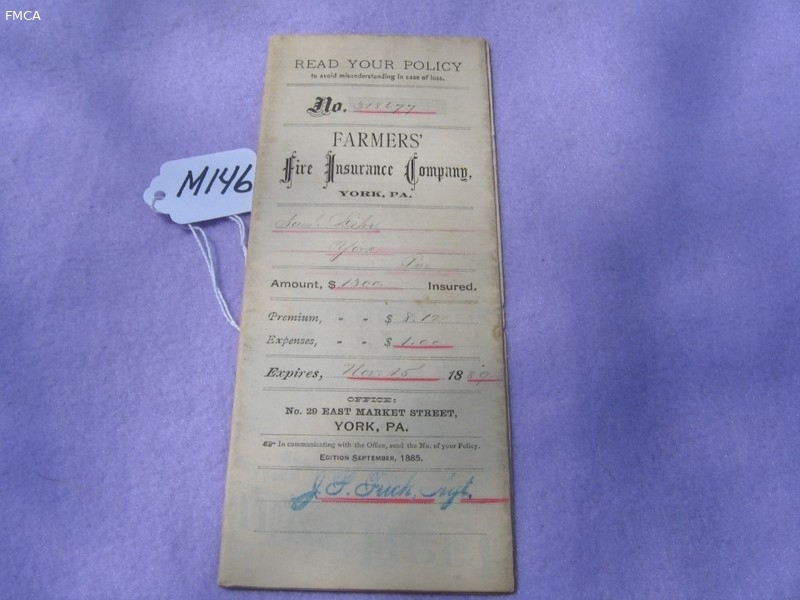 FMCA
READ YOUR POLICY
to avoid misunderstanding in case of loss.
No. 318677
FARMERS'
Fire Insurance Company,
YORK, PA.
York
Pa
Amount, $ 1300 Insured.
Premium, " " $ 8.12
Expenses, " " $ 1.00
Expires, Nov. 15 1889
OFFICE:
No. 29 EAST MARKET STREET,
YORK, PA.
In communicating with the Office, send the No. of your Policy.
EDITION SEPTEMBER, 1885.
Agt.
M146